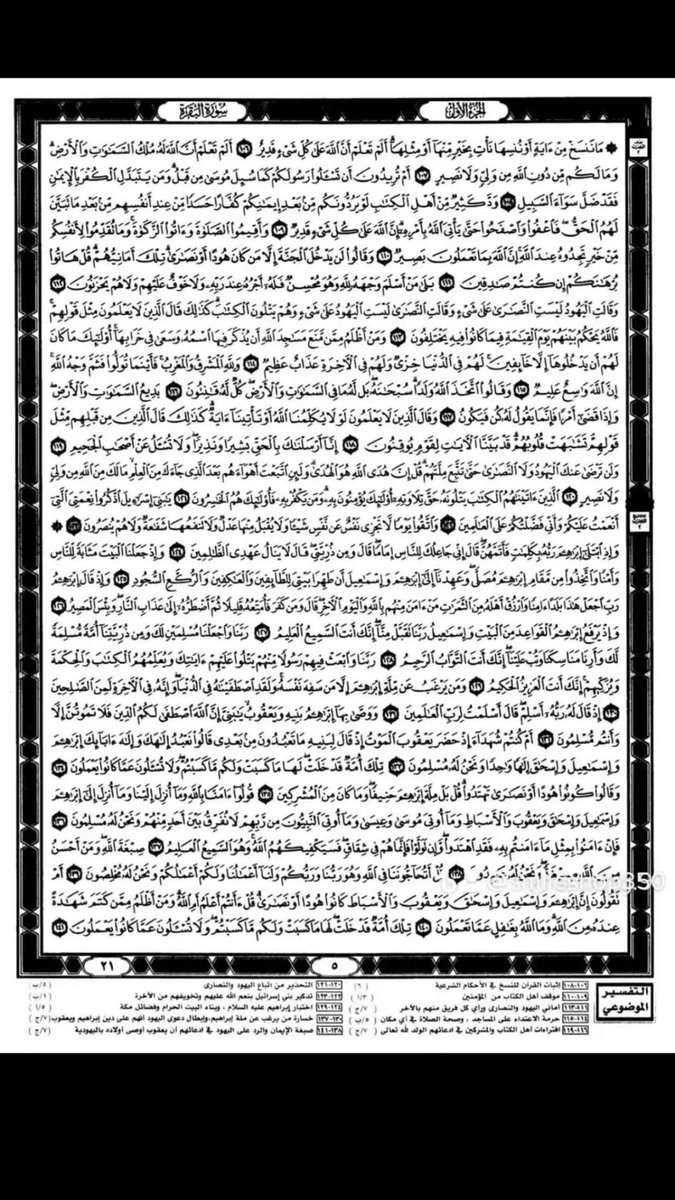 سُورَةُ البَقَرَةِ الجُزْءُ الأَوَّلُ
۞ مَا نَنسَخْ مِنْ ءَايَةٍ أَوْ نُنسِهَا نَأْتِ بِخَيْرٍ مِّنْهَآ أَوْ مِثْلِهَآ أَلَمْ تَعْلَمْ أَنَّ ٱللَّهَ عَلَىٰ كُلِّ شَىْءٍ قَدِيرٌ ١٠٦ أَلَمْ تَعْلَمْ أَنَّ ٱللَّهَ لَهُۥ مُلْكُ ٱلسَّمَٰوَٰتِ وَٱلْأَرْضِ
وَمَا لَكُم مِّن دُونِ ٱللَّهِ مِن وَلِىٍّ وَلَا نَصِيرٍ ١٠٧ أَمْ تُرِيدُونَ أَن تَسْـَٔلُوا۟ رَسُولَكُمْ كَمَا سُئِلَ مُوسَىٰ مِن قَبْلُ وَمَن يَتَبَدَّلِ ٱلْكُفْرَ بِٱلْإِيمَٰنِ
فَقَدْ ضَلَّ سَوَآءَ ٱلسَّبِيلِ ١٠٨ وَدَّ كَثِيرٌ مِّنْ أَهْلِ ٱلْكِتَٰبِ لَوْ يَرُدُّونَكُم مِّنۢ بَعْدِ إِيمَٰنِكُمْ كُفَّارًا حَسَدًا مِّنْ عِندِ أَنفُسِهِم مِّنۢ بَعْدِ مَا تَبَيَّنَ
لَهُمُ ٱلْحَقُّ فَٱعْفُوا۟ وَٱصْفَحُوا۟ حَتَّىٰ يَأْتِىَ ٱللَّهُ بِأَمْرِهِۦٓ إِنَّ ٱللَّهَ عَلَىٰ كُلِّ شَىْءٍ قَدِيرٌ ١٠٩ وَأَقِيمُوا۟ ٱلصَّلَوٰةَ وَءَاتُوا۟ ٱلزَّكَوٰةَ وَمَا تُقَدِّمُوا۟ لِأَنفُسِكُم
مِّنْ خَيْرٍ تَجِدُوهُ عِندَ ٱللَّهِ إِنَّ ٱللَّهَ بِمَا تَعْمَلُونَ بَصِيرٌ ١١٠ وَقَالُوا۟ لَن يَدْخُلَ ٱلْجَنَّةَ إِلَّا مَن كَانَ هُودًا أَوْ نَصَٰرَىٰ تِلْكَ أَمَانِيُّهُمْ قُلْ هَاتُوا۟
بُرْهَٰنَكُمْ إِن كُنتُمْ صَٰدِقِينَ ١١١ بَلَىٰ مَنْ أَسْلَمَ وَجْهَهُۥ لِلَّهِ وَهُوَ مُحْسِنٌ فَلَهُۥٓ أَجْرُهُۥ عِندَ رَبِّهِۦ وَلَا خَوْفٌ عَلَيْهِمْ وَلَا هُمْ يَحْزَنُونَ ١١٢
وَقَالَتِ ٱلْيَهُودُ لَيْسَتِ ٱلنَّصَٰرَىٰ عَلَىٰ شَىْءٍ وَقَالَتِ ٱلنَّصَٰرَىٰ لَيْسَتِ ٱلْيَهُودُ عَلَىٰ شَىْءٍ وَهُمْ يَتْلُونَ ٱلْكِتَٰبَ كَذَٰلِكَ قَالَ ٱلَّذِينَ لَا يَعْلَمُونَ مِثْلَ قَوْلِهِمْ
فَٱللَّهُ يَحْكُمُ بَيْنَهُمْ يَوْمَ ٱلْقِيَٰمَةِ فِيمَا كَانُوا۟ فِيهِ يَخْتَلِفُونَ ١١٣ وَمَنْ أَظْلَمُ مِمَّن مَّنَعَ مَسَٰجِدَ ٱللَّهِ أَن يُذْكَرَ فِيهَا ٱسْمُهُۥ وَسَعَىٰ فِى خَرَابِهَآ أُو۟لَٰٓئِكَ مَا كَانَ
لَهُمْ أَن يَدْخُلُوهَآ إِلَّا خَآئِفِينَ لَهُمْ فِى ٱلدُّنْيَا خِزْىٌ وَلَهُمْ فِى ٱلْءَاخِرَةِ عَذَابٌ عَظِيمٌ ١١٤ وَلِلَّهِ ٱلْمَشْرِقُ وَٱلْمَغْرِبُ فَأَيْنَمَا تُوَلُّوا۟ فَثَمَّ وَجْهُ ٱللَّهِ
إِنَّ ٱللَّهَ وَٰسِعٌ عَلِيمٌ ١١٥ وَقَالُوا۟ ٱتَّخَذَ ٱللَّهُ وَلَدًا سُبْحَٰنَهُۥ بَل لَّهُۥ مَا فِى ٱلسَّمَٰوَٰتِ وَٱلْأَرْضِ كُلٌّ لَّهُۥ قَٰنِتُونَ ١١٦ بَدِيعُ ٱلسَّمَٰوَٰتِ وَٱلْأَرْضِ
وَإِذَا قَضَىٰٓ أَمْرًا فَإِنَّمَا يَقُولُ لَهُۥ كُن فَيَكُونُ ١١٧ وَقَالَ ٱلَّذِينَ لَا يَعْلَمُونَ لَوْلَا يُكَلِّمُنَا ٱللَّهُ أَوْ تَأْتِينَآ ءَايَةٌ كَذَٰلِكَ قَالَ ٱلَّذِينَ مِن قَبْلِهِم مِّثْلَ
قَوْلِهِمْ تَشَٰبَهَتْ قُلُوبُهُمْ قَدْ بَيَّنَّا ٱلْءَايَٰتِ لِقَوْمٍ يُوقِنُونَ ١١٨ إِنَّآ أَرْسَلْنَٰكَ بِٱلْحَقِّ بَشِيرًا وَنَذِيرًا وَلَا تُسْـَٔلُ عَنْ أَصْحَٰبِ ٱلْجَحِيمِ ١١٩
وَلَن تَرْضَىٰ عَنكَ ٱلْيَهُودُ وَلَا ٱلنَّصَٰرَىٰ حَتَّىٰ تَتَّبِعَ مِلَّتَهُمْ قُلْ إِنَّ هُدَى ٱللَّهِ هُوَ ٱلْهُدَىٰ وَلَئِنِ ٱتَّبَعْتَ أَهْوَآءَهُم بَعْدَ ٱلَّذِى جَآءَكَ مِنَ ٱلْعِلْمِ مَا لَكَ مِنَ ٱللَّهِ مِن وَلِىٍّ
وَلَا نَصِيرٍ ١٢٠ ٱلَّذِينَ ءَاتَيْنَٰهُمُ ٱلْكِتَٰبَ يَتْلُونَهُۥ حَقَّ تِلَاوَتِهِۦٓ أُو۟لَٰٓئِكَ يُؤْمِنُونَ بِهِۦ وَمَن يَكْفُرْ بِهِۦ فَأُو۟لَٰٓئِكَ هُمُ ٱلْخَٰسِرُونَ ١٢١ يَٰبَنِىٓ إِسْرَٰٓءِيلَ ٱذْكُرُوا۟ نِعْمَتِىَ ٱلَّتِىٓ
أَنْعَمْتُ عَلَيْكُمْ وَأَنِّى فَضَّلْتُكُمْ عَلَى ٱلْعَٰلَمِينَ ١٢٢ وَٱتَّقُوا۟ يَوْمًا لَّا تَجْزِى نَفْسٌ عَن نَّفْسٍ شَيْـًٔا وَلَا يُقْبَلُ مِنْهَا عَدْلٌ وَلَا تَنفَعُهَا شَفَٰعَةٌ وَلَا هُمْ يُنصَرُونَ ١٢٣ ۞
وَإِذِ ٱبْتَلَىٰٓ إِبْرَٰهِۦمَ رَبُّهُۥ بِكَلِمَٰتٍ فَأَتَمَّهُنَّ قَالَ إِنِّى جَاعِلُكَ لِلنَّاسِ إِمَامًا قَالَ وَمِن ذُرِّيَّتِى قَالَ لَا يَنَالُ عَهْدِى ٱلظَّٰلِمِينَ ١٢٤ وَإِذْ جَعَلْنَا ٱلْبَيْتَ مَثَابَةً لِّلنَّاسِ
وَأَمْنًا وَٱتَّخِذُوا۟ مِن مَّقَامِ إِبْرَٰهِۦمَ مُصَلًّى وَعَهِدْنَآ إِلَىٰٓ إِبْرَٰهِۦمَ وَإِسْمَٰعِيلَ أَن طَهِّرَا بَيْتِىَ لِلطَّآئِفِينَ وَٱلْعَٰكِفِينَ وَٱلرُّكَّعِ ٱلسُّجُودِ ١٢٥ وَإِذْ قَالَ إِبْرَٰهِۦمُ
رَبِّ ٱجْعَلْ هَٰذَا بَلَدًا ءَامِنًا وَٱرْزُقْ أَهْلَهُۥ مِنَ ٱلثَّمَرَٰتِ مَنْ ءَامَنَ مِنْهُم بِٱللَّهِ وَٱلْيَوْمِ ٱلْءَاخِرِ قَالَ وَمَن كَفَرَ فَأُمَتِّعُهُۥ قَلِيلًا ثُمَّ أَضْطَرُّهُۥٓ إِلَىٰ عَذَابِ ٱلنَّارِ وَبِئْسَ ٱلْمَصِيرُ ١٢٦
وَإِذْ يَرْفَعُ إِبْرَٰهِۦمُ ٱلْقَوَاعِدَ مِنَ ٱلْبَيْتِ وَإِسْمَٰعِيلُ رَبَّنَا تَقَبَّلْ مِنَّآ إِنَّكَ أَنتَ ٱلسَّمِيعُ ٱلْعَلِيمُ ١٢٧ رَبَّنَا وَٱجْعَلْنَا مُسْلِمَيْنِ لَكَ وَمِن ذُرِّيَّتِنَآ أُمَّةً مُّسْلِمَةً
لَّكَ وَأَرِنَا مَنَاسِكَنَا وَتُبْ عَلَيْنَآ إِنَّكَ أَنتَ ٱلتَّوَّابُ ٱلرَّحِيمُ ١٢٨ رَبَّنَا وَٱبْعَثْ فِيهِمْ رَسُولًا مِّنْهُمْ يَتْلُوا۟ عَلَيْهِمْ ءَايَٰتِكَ وَيُعَلِّمُهُمُ ٱلْكِتَٰبَ وَٱلْحِكْمَةَ
وَيُزَكِّيهِمْ إِنَّكَ أَنتَ ٱلْعَزِيزُ ٱلْحَكِيمُ ١٢٩ وَمَن يَرْغَبُ عَن مِّلَّةِ إِبْرَٰهِۦمَ إِلَّا مَن سَفِهَ نَفْسَهُۥ وَلَقَدِ ٱصْطَفَيْنَٰهُ فِى ٱلدُّنْيَا وَإِنَّهُۥ فِى ٱلْءَاخِرَةِ لَمِنَ ٱلصَّٰلِحِينَ
١٣٠ إِذْ قَالَ لَهُۥ رَبُّهُۥٓ أَسْلِمْ قَالَ أَسْلَمْتُ لِرَبِّ ٱلْعَٰلَمِينَ ١٣١ وَوَصَّىٰ بِهَآ إِبْرَٰهِۦمُ بَنِيهِ وَيَعْقُوبُ يَٰبَنِىَّ إِنَّ ٱللَّهَ ٱصْطَفَىٰ لَكُمُ ٱلدِّينَ فَلَا تَمُوتُنَّ إِلَّا
وَأَنتُم مُّسْلِمُونَ ١٣٢ أَمْ كُنتُمْ شُهَدَآءَ إِذْ حَضَرَ يَعْقُوبَ ٱلْمَوْتُ إِذْ قَالَ لِبَنِيهِ مَا تَعْبُدُونَ مِنۢ بَعْدِى قَالُوا۟ نَعْبُدُ إِلَٰهَكَ وَإِلَٰهَ ءَابَآئِكَ إِبْرَٰهِۦمَ
وَإِسْمَٰعِيلَ وَإِسْحَٰقَ إِلَٰهًا وَٰحِدًا وَنَحْنُ لَهُۥ مُسْلِمُونَ ١٣٣ تِلْكَ أُمَّةٌ قَدْ خَلَتْ لَهَا مَا كَسَبَتْ وَلَكُم مَّا كَسَبْتُمْ وَلَا تُسْـَٔلُونَ عَمَّا كَانُوا۟ يَعْمَلُونَ ١٣٤
وَقَالُوا۟ كُونُوا۟ هُودًا أَوْ نَصَٰرَىٰ تَهْتَدُوا۟ قُلْ بَلْ مِلَّةَ إِبْرَٰهِۦمَ حَنِيفًا وَمَا كَانَ مِنَ ٱلْمُشْرِكِينَ ١٣٥ قُولُوٓا۟ ءَامَنَّا بِٱللَّهِ وَمَآ أُنزِلَ إِلَيْنَا وَمَآ أُنزِلَ إِلَىٰٓ إِبْرَٰهِۦمَ
وَإِسْمَٰعِيلَ وَإِسْحَٰقَ وَيَعْقُوبَ وَٱلْأَسْبَاطِ وَمَآ أُوتِىَ مُوسَىٰ وَعِيسَىٰ وَمَآ أُوتِىَ ٱلنَّبِيُّونَ مِن رَّبِّهِمْ لَا نُفَرِّقُ بَيْنَ أَحَدٍ مِّنْهُمْ وَنَحْنُ لَهُۥ مُسْلِمُونَ ١٣٦
فَإِنْ ءَامَنُوا۟ بِمِثْلِ مَآ ءَامَنتُم بِهِۦ فَقَدِ ٱهْتَدَوا۟ وَّإِن تَوَلَّوْا۟ فَإِنَّمَا هُمْ فِى شِقَاقٍ فَسَيَكْفِيكَهُمُ ٱللَّهُ وَهُوَ ٱلسَّمِيعُ ٱلْعَلِيمُ ١٣٧ صِبْغَةَ ٱللَّهِ وَمَنْ أَحْسَنُ
مِنَ ٱللَّهِ صِبْغَةً وَنَحْنُ لَهُۥ عَٰبِدُونَ ١٣٨ قُلْ أَتُحَآجُّونَنَا فِى ٱللَّهِ وَهُوَ رَبُّنَا وَرَبُّكُمْ وَلَنَآ أَعْمَٰلُنَا وَلَكُمْ أَعْمَٰلُكُمْ وَنَحْنُ لَهُۥ مُخْلِصُونَ ١٣٩ أَمْ
تَقُولُونَ إِنَّ إِبْرَٰهِۦمَ وَإِسْمَٰعِيلَ وَإِسْحَٰقَ وَيَعْقُوبَ وَٱلْأَسْبَاطَ كَانُوا۟ هُودًا أَوْ نَصَٰرَىٰ قُلْ ءَأَنتُمْ أَعْلَمُ أَمِ ٱللَّهُ وَمَنْ أَظْلَمُ مِمَّن كَتَمَ شَهَٰدَةً
عِندَهُۥ مِنَ ٱللَّهِ وَمَا ٱللَّهُ بِغَٰفِلٍ عَمَّا تَعْمَلُونَ ١٤٠ تِلْكَ أُمَّةٌ قَدْ خَلَتْ لَهَا مَا كَسَبَتْ وَلَكُم مَّا كَسَبْتُمْ وَلَا تُسْـَٔلُونَ عَمَّا كَانُوا۟ يَعْمَلُونَ ١٤١
٥ ٢١
التفسير الموضوعي
١٠٦-١٠٨ إثبات القرآن للنسخ في الأحكام الشرعية (٦)
١٠٩-١١٠ موقف أهل الكتاب من المؤمنين (١/٣)
١١١-١١٣ أماني اليهود والنصارى ورأي كل فريق منهم بالآخر (٧/ج)
١١٤-١١٥ حرمة الاعتداء على المساجد ، وصحة الصلاة في أي مكان (٥/ب)
١١٦-١١٩ افتراءات أهل الكتاب والمشركين في ادعائهم الولد لله تعالى (٧/ج)
١٢٠-١٢١ التحذير من اتباع اليهود والنصارى (٥/ب)
١٢٢-١٢٣ تذكير بني إسرائيل بنعم الله عليهم وتخويفهم من الآخرة (١/ب)
١٢٤-١٢٩ اختبار إبراهيم عليه السلام ، وبناء البيت الحرام وفضائل مكة (٥/أ)
١٣٠-١٣٧ خسارة من يرغب عن ملة إبراهيم،وإبطال دعوى اليهود أنهم على دين إبراهيم ويعقوب (٧/ج)
١٣٨-١٤١ صبغة الإيمان والرد على اليهود في ادعائهم أن يعقوب أوصى أولاده باليهودية (٧/ج)